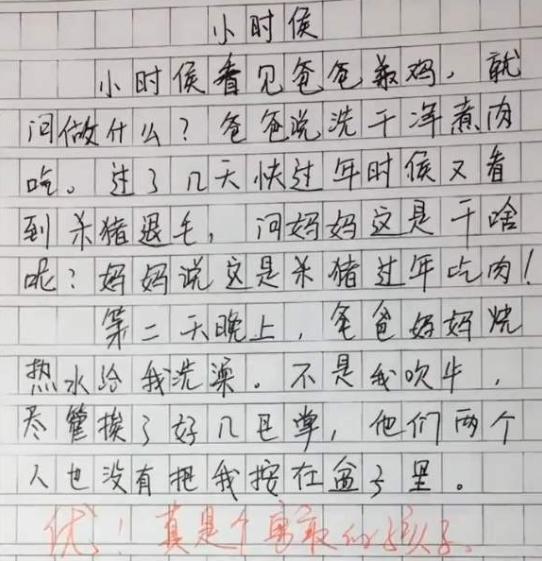 小时侯
小时侯看见爸爸杀鸡，就
问做什么？爸爸说洗干净煮肉
吃。过了几天快过年时侯又看
到杀猪退毛，问妈妈这是干啥
呢？妈妈说这是杀猪过年吃肉！
第二天晚上，爸爸妈妈烧
热水给我洗澡。不是我吹牛，
尽管挨了好几巴掌，他们两个
人也没有把我按在盆子里。
优！真是个勇敢的孩子。